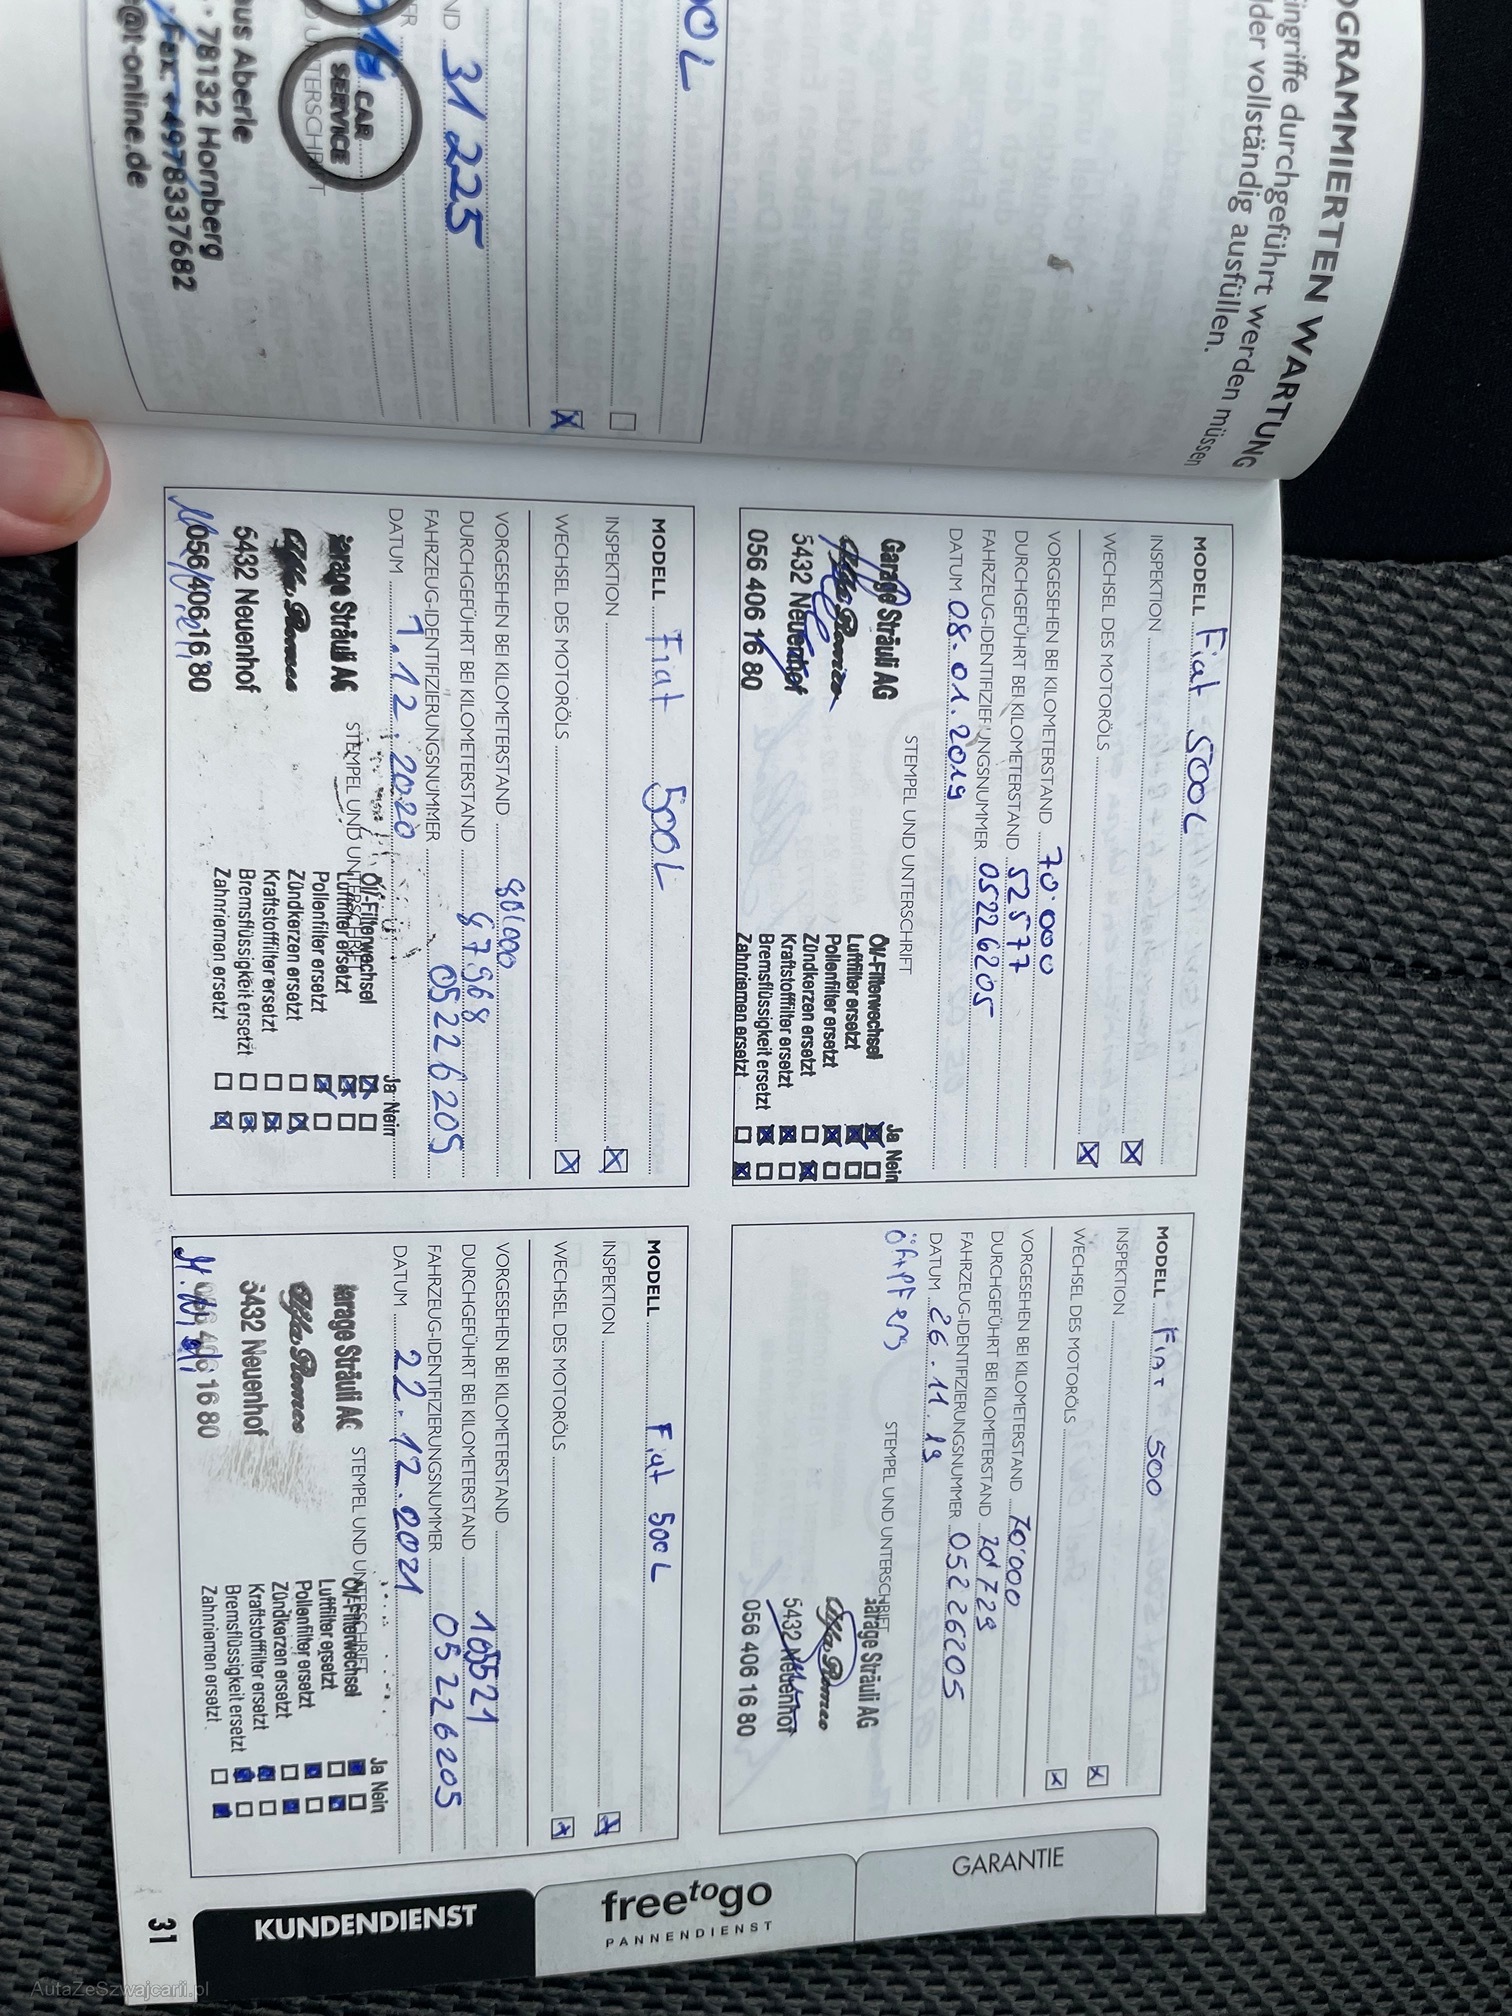 OGRAMMIERTEN WARTUNG
ingriffe durchgeführt werden müssen
lder vollständig ausfüllen.
00L
31 225
CAR
SERVICE
us Aberle
78132 Hornberg
Fax: +497833 7682
@t-online.de
MODELL Fiat 500L
INSPEKTION
WECHSEL DES MOTORÖLS
VORGESEHEN BEI KILOMETERSTAND 70'000
DURCHGEFÜHRT BEI KILOMETERSTAND 52577
FAHRZEUG-IDENTIFIZIERUNGSNUMMER 05226205
DATUM 08.01.2019
STEMPEL UND UNTERSCHRIFT
Garage Sträuli AG
Alfa Romeo
5432 Neuenhof
056 406 16 80
Ja Nein
Öl/-Filterwechsel
Luftfilter ersetzt
Pollenfilter ersetzt
Zündkerzen ersetzt
Kraftstofffilter ersetzt
Bremsflüssigkeit ersetzt
Zahnriemen ersetzt
MODELL Fiat 500
INSPEKTION
WECHSEL DES MOTORÖLS
VORGESEHEN BEI KILOMETERSTAND 70'000
DURCHGEFÜHRT BEI KILOMETERSTAND
FAHRZEUG-IDENTIFIZIERUNGSNUMMER 05226205
DATUM 26.11.19
STEMPEL UND UNTERSCHRIFT
Garage Sträuli AG
Alfa Romeo
5432 Neuenhof
056 406 16 80
MODELL Fiat 500L
INSPEKTION
WECHSEL DES MOTORÖLS
VORGESEHEN BEI KILOMETERSTAND
DURCHGEFÜHRT BEI KILOMETERSTAND 87968
FAHRZEUG-IDENTIFIZIERUNGSNUMMER 05226205
DATUM 1.12.2020
STEMPEL UND UNTERSCHRIFT
arage Sträuli AG
Alfa Romeo
5432 Neuenhof
056 406 16 80
Ja Nein
Öl/-Filterwechsel
Luftfilter ersetzt
Pollenfilter ersetzt
Zündkerzen ersetzt
Kraftstofffilter ersetzt
Bremsflüssigkeit ersetzt
Zahnriemen ersetzt
MODELL Fiat 500L
INSPEKTION
WECHSEL DES MOTORÖLS
VORGESEHEN BEI KILOMETERSTAND
DURCHGEFÜHRT BEI KILOMETERSTAND 105521
FAHRZEUG-IDENTIFIZIERUNGSNUMMER 05226205
DATUM 22.12.2021
STEMPEL UND UNTERSCHRIFT
arage Sträuli AG
Alfa Romeo
5432 Neuenhof
056 406 16 80
Ja Nein
Öl/-Filterwechsel
Luftfilter ersetzt
Pollenfilter ersetzt
Zündkerzen ersetzt
Kraftstofffilter ersetzt
Bremsflüssigkeit ersetzt
Zahnriemen ersetzt
GARANTIE
freetogo
PANNENDIENST
KUNDENDIENST
31
AutaZeSzwajcarii.pl